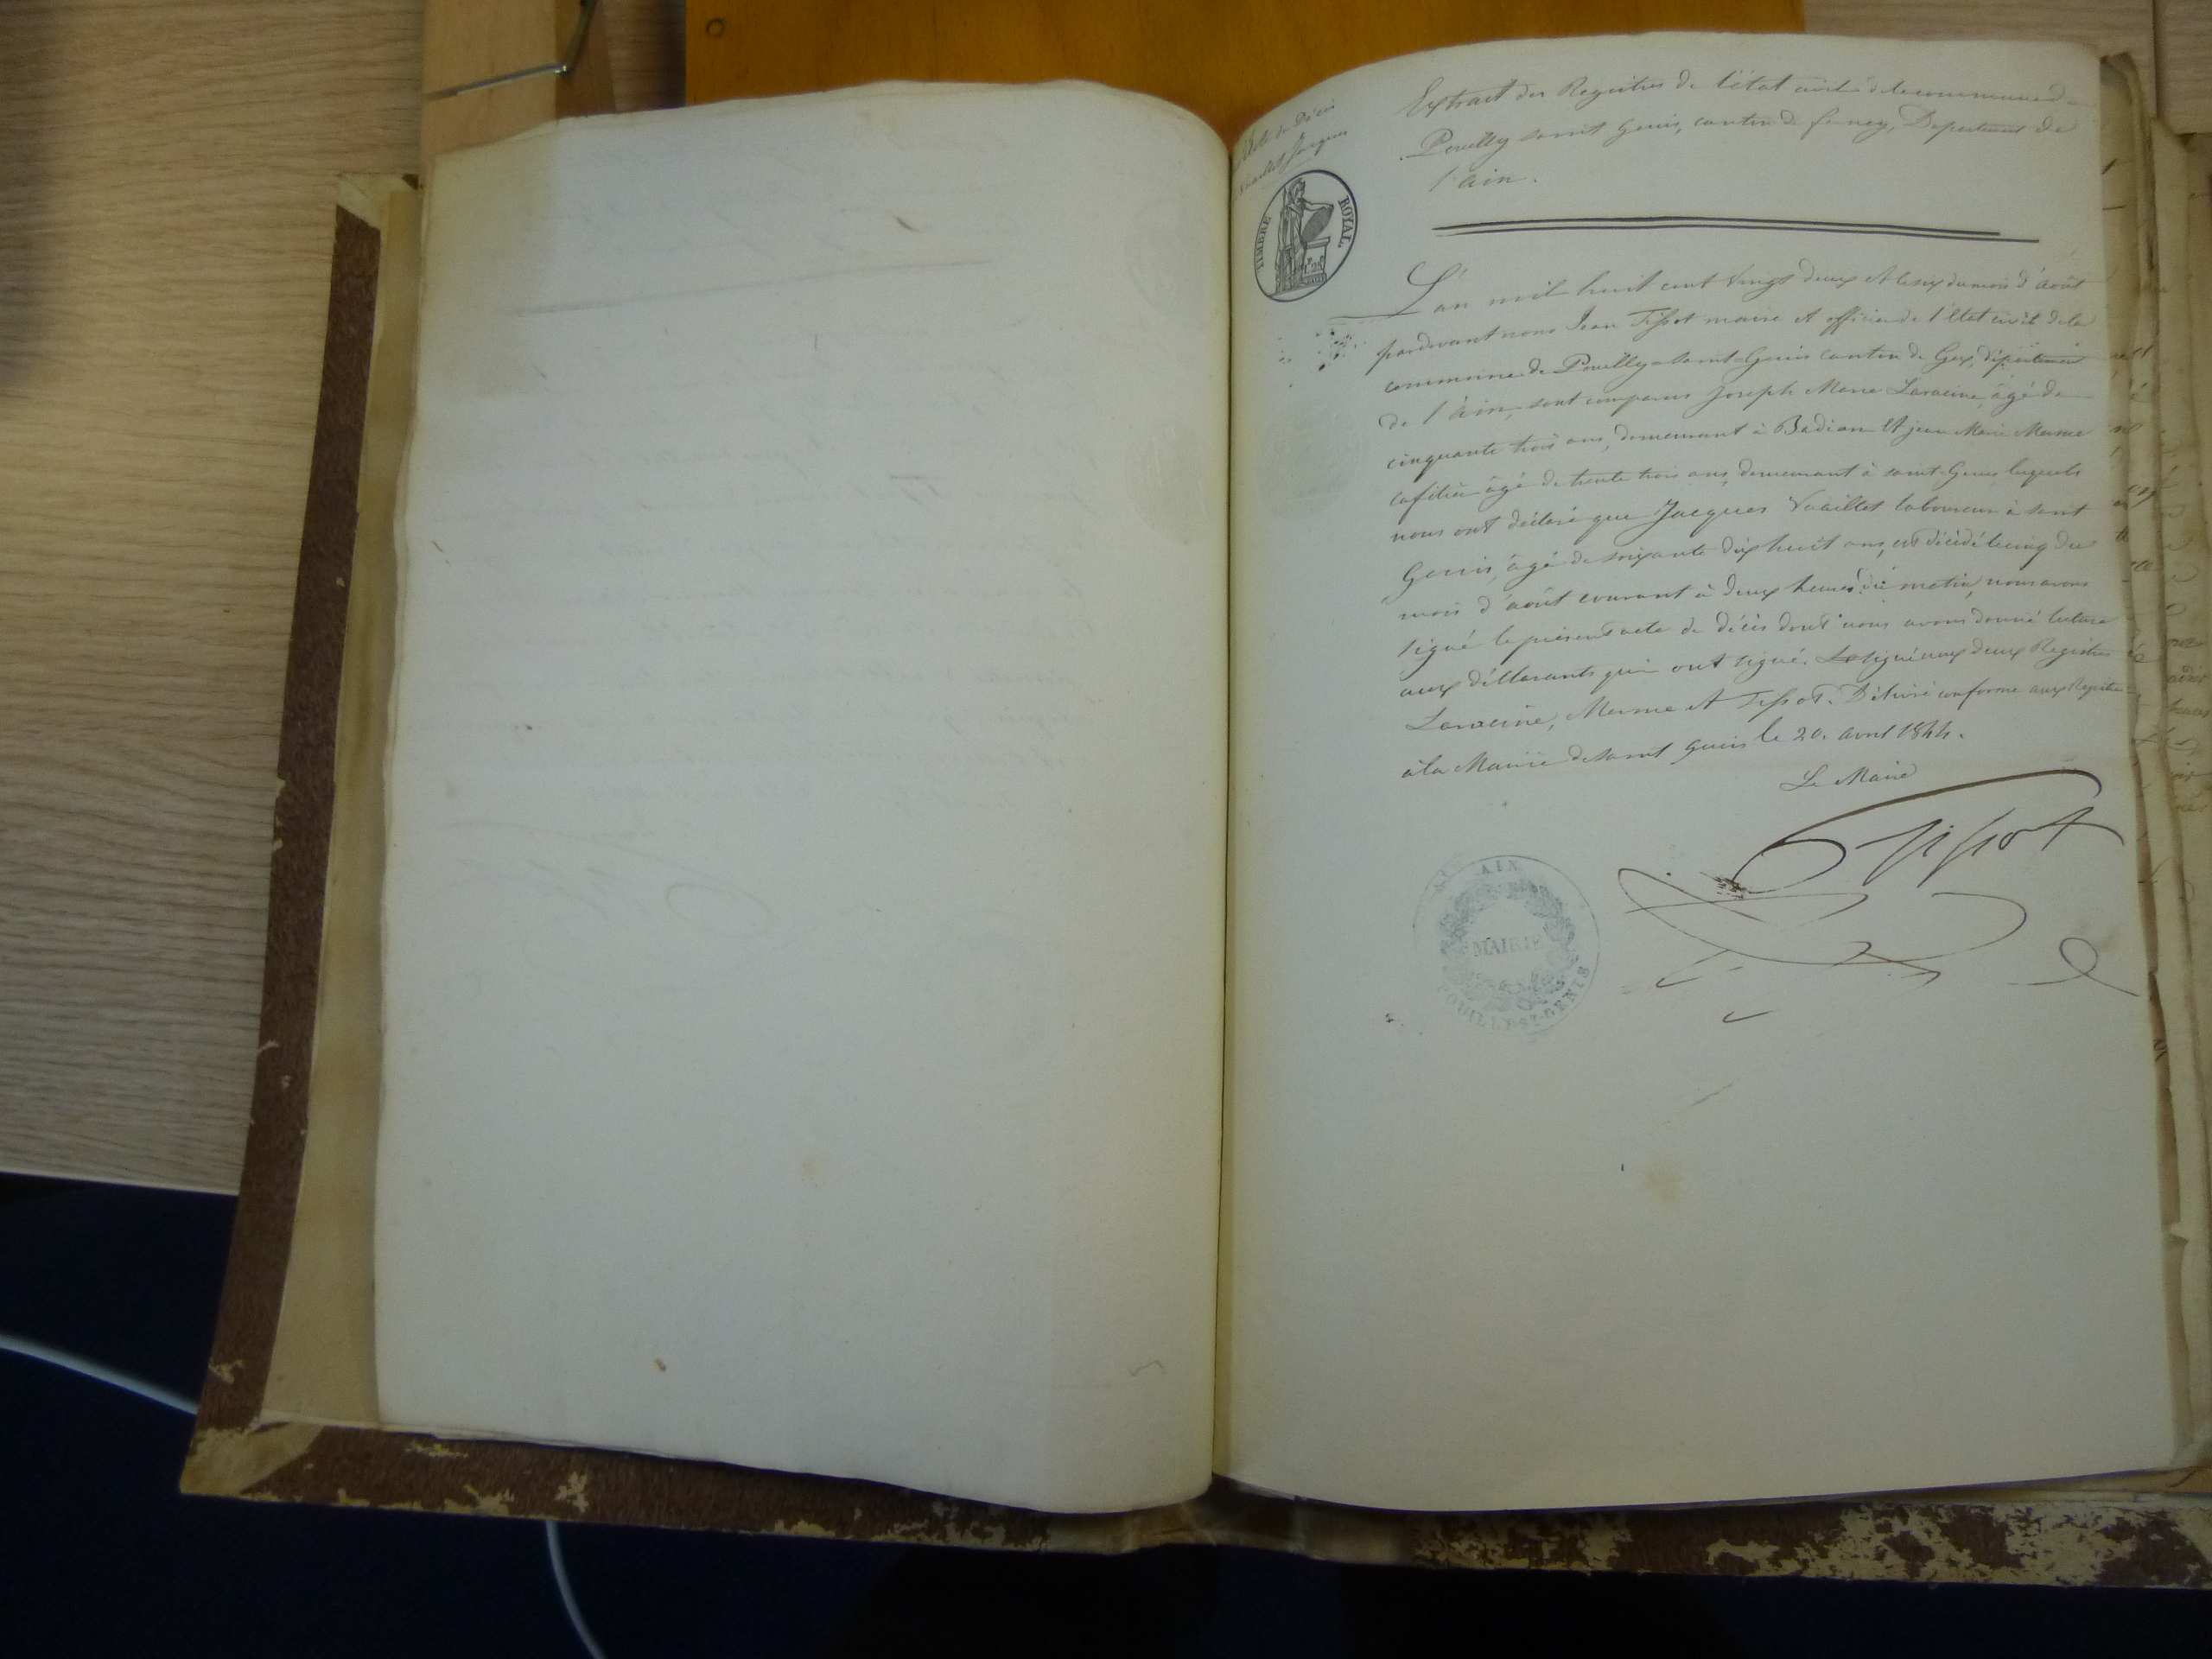 Acte de Décès
Vuaillet Jacques
Extrait des Registres de l'état civil de la commune de
Pouilly saint Genis, canton de ferney, Département de
l'ain.
TIMBRE ROYAL
L'an mil huit cent vingt deux et le six du mois d'août
pardevant nous Jean Tissot maire et officier de l'état civil de la
commune de Pouilly-saint-Genis canton de Gex, département
de l'ain, sont comparus Joseph Marie Laracine, âgé de
cinquante trois ans, demeurant à Badian Et jean Marie Merme
cafetier âgé de trente trois ans, demeurant à saint-Genis lesquels
nous ont déclaré que Jacques Vuaillet laboureur à saint
Genis, âgé de soixante dix huit ans, est décédé le cinq du
mois d'août courant à deux heures du matin, nous avons
signé le présent acte de décès dont nous avons donné lecture
aux déclarants qui ont signé. signé aux deux Registres
Laracine, Merme et Tissot. Délivré conforme aux Registres
à la Mairie de saint genis le 20. avril 1844.
Le Maire
Tissot
AIN
MAIRIE
POUILLY-ST-GENIS